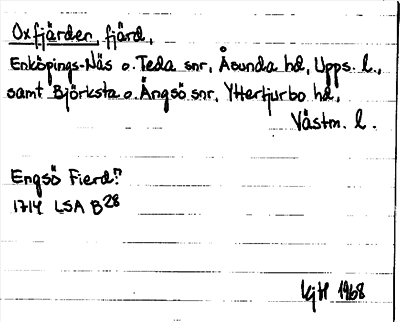 Oxfjärden, fjärd,
Enköpings-Näs o. Teda snr, Åsunda hd, Upps. l.,
samt Björksta o. Ängsö snr, Yttertjurbo hd,
Västm. l.
Engsö Fierd:n
1714 LSA B28
KjH 1968